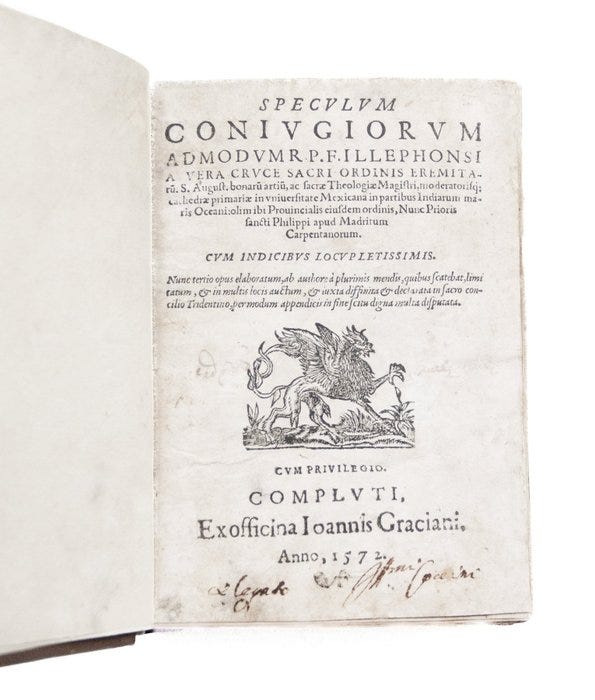 SPECVLVM
CONIVGIORVM
ADMODVM R. P. F. ILLEPHONSI
A VERA CRVCE SACRI ORDINIS EREMITA-
rū. S. August. bonarū artiū, ac sacræ Theologiæ Magistri, moderatorisq;
cathedræ primariæ in vniuersitate Mexicana in partibus Indiarum ma-
ris Oceani: olim ibi Prouincialis eiusdem ordinis, Nunc Prioris
sancti Philippi apud Madritum
Carpentanorum.
CVM INDICIBVS LOCVPLETISSIMIS.
Nunc tertio opus elaboratum, ab authore à plurimis mendis, quibus scatebat, limi
tatum, & in multis locis auctum, & iuxta diffinita & declarata in sacro con-
cilio Tridentino, per modum appendicis in fine scitu digna multa disputata.
CVM PRIVILEGIO.
COMPLVTI,
Ex officina Ioannis Graciani.
Anno, 1572.